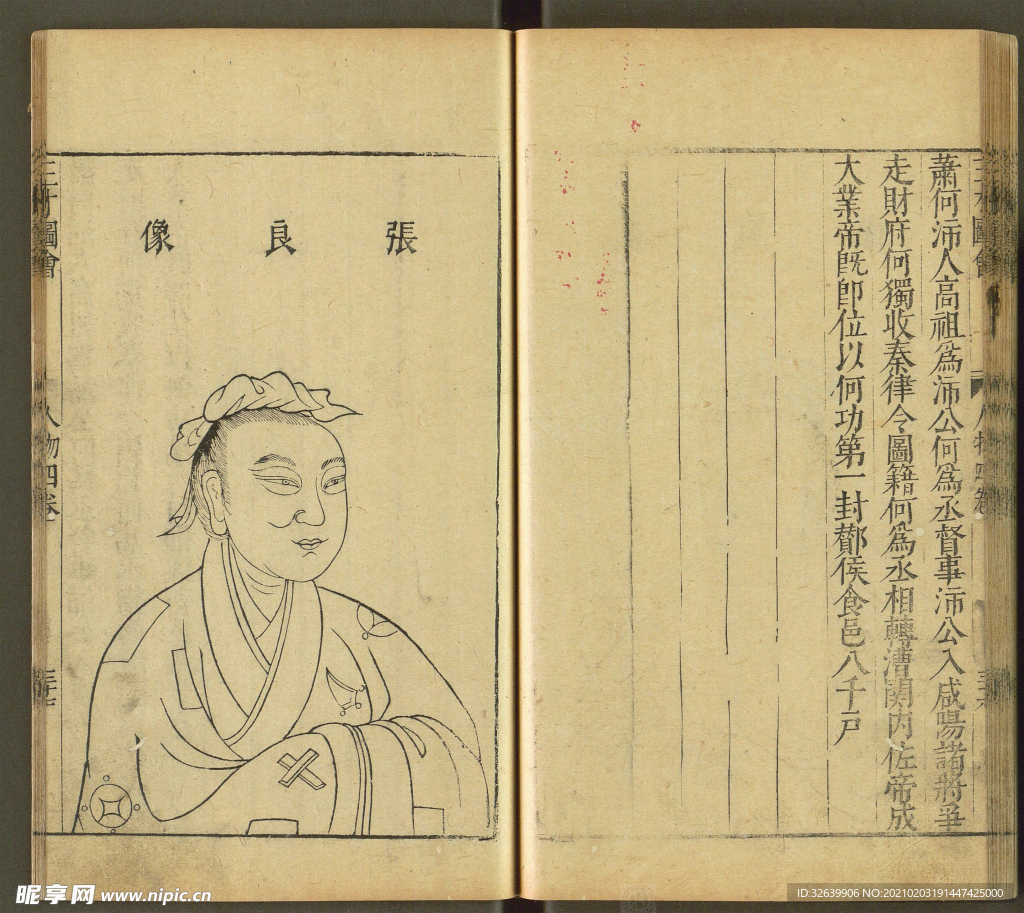 蕭何沛人高祖為沛公何為丞督事沛公入咸陽諸將爭
走財府何獨收秦律令圖籍何為丞相轉漕関内佐帝成
大業帝既即位以何功第一封酇侯食邑八千户
三才圖會
人物四卷
張良像
三才圖會
人物四卷
昵享网 www.nipic.cn
ID:32639906 NO:20210203191447425000